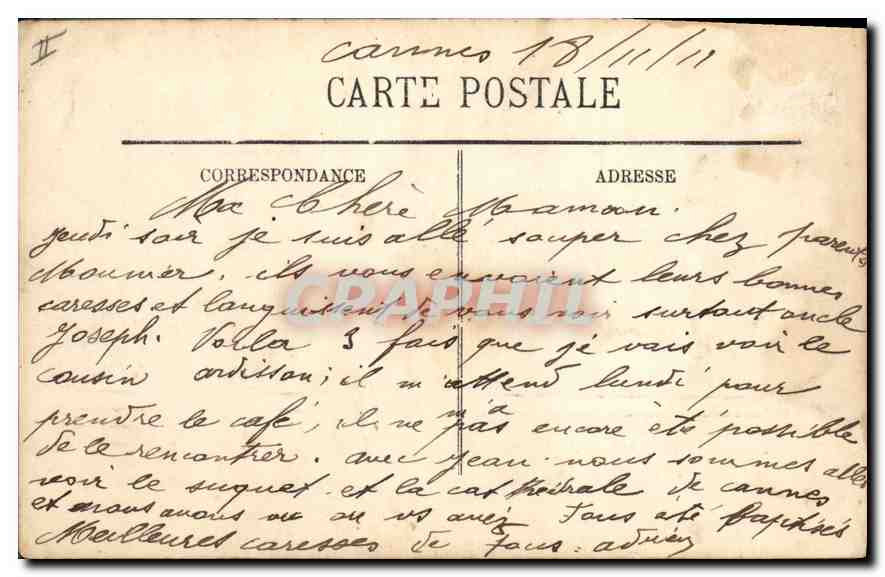 II
Cannes 18/11/11
CARTE POSTALE
CORRESPONDANCE
ADRESSE
Ma Chère Maman.
Jeudi soir je suis allé souper chez parents
Mounier. ils vous envoient leurs bonnes
caresses et languissent de vous voir surtout oncle
Joseph. Voila 3 fois que je vais voir le
cousin ardisson; il m'attend lundi pour
prendre le café, il ne m'a pas encore été possible
de le rencontrer. avec Jean nous sommes allés
voir le suquet et la cathédrale de cannes
et nous avons vu ou vs avez tous été baptisés
Meilleures caresses de tous. adrien
CRAPHIL